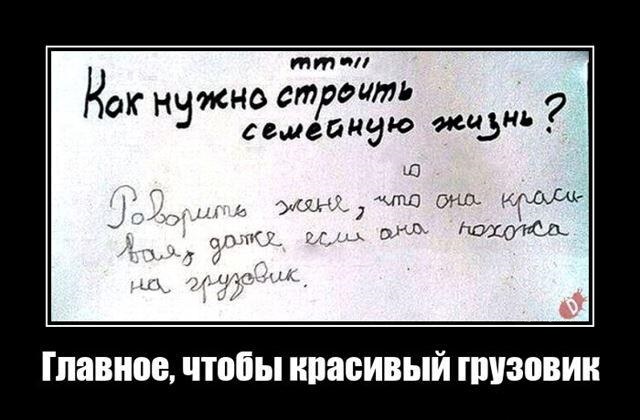 Как нужно строить
семейную жизнь?
Говорить жене, что она краси-
вая, даже если она похожа
на грузовик.
Главное, чтобы красивый грузовик